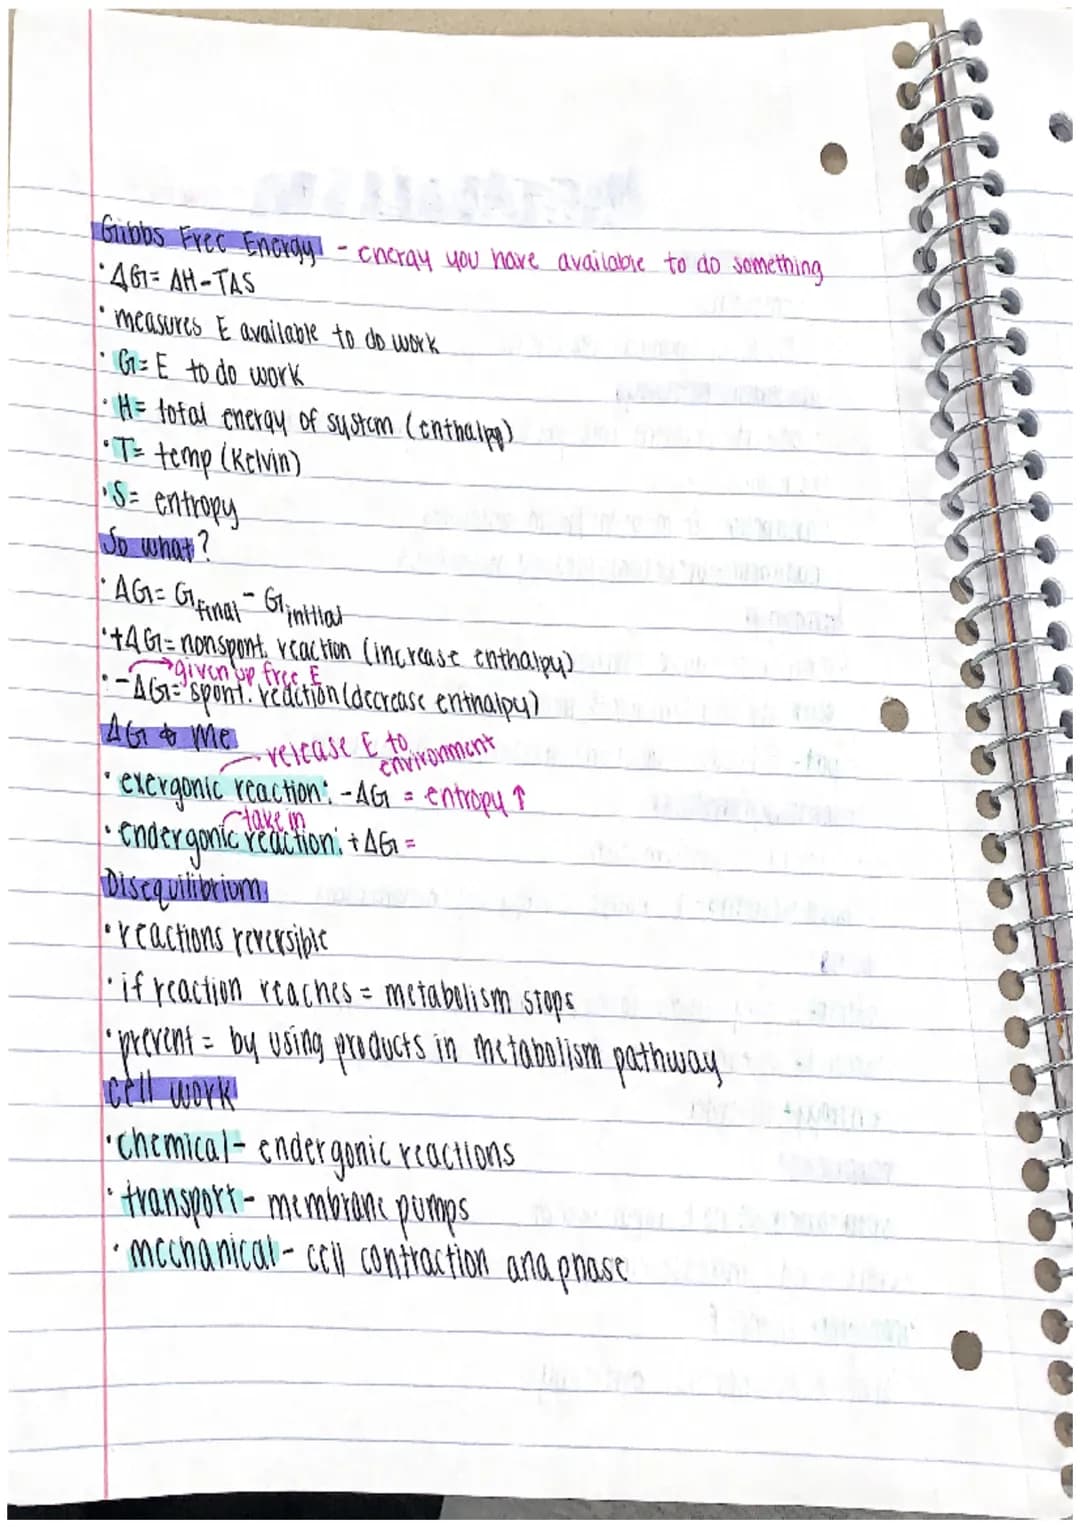 Gibbs Free Energy - energy you have available to do something
· ΔG = ΔH - TΔS
· measures E available to do work
· G = E to do work
· H = total energy of system (enthalpy)
· T = temp (Kelvin)
· S = entropy
So what?
· ΔG = G final - G initial
· +ΔG = nonspont. reaction (increase enthalpy)
→ given up free E
· -ΔG = spont. reaction (decrease enthalpy)
ΔG & Me
release E to environment
· exergonic reaction: -ΔG = entropy ↑
take in
· endergonic reaction: +ΔG =
Disequilibrium
· reactions reversible
· if reaction reaches = metabolism stops
· prevent = by using products in metabolism pathway
cell work
· chemical - endergonic reactions
· transport - membrane pumps
· mechanical - cell contraction anaphase